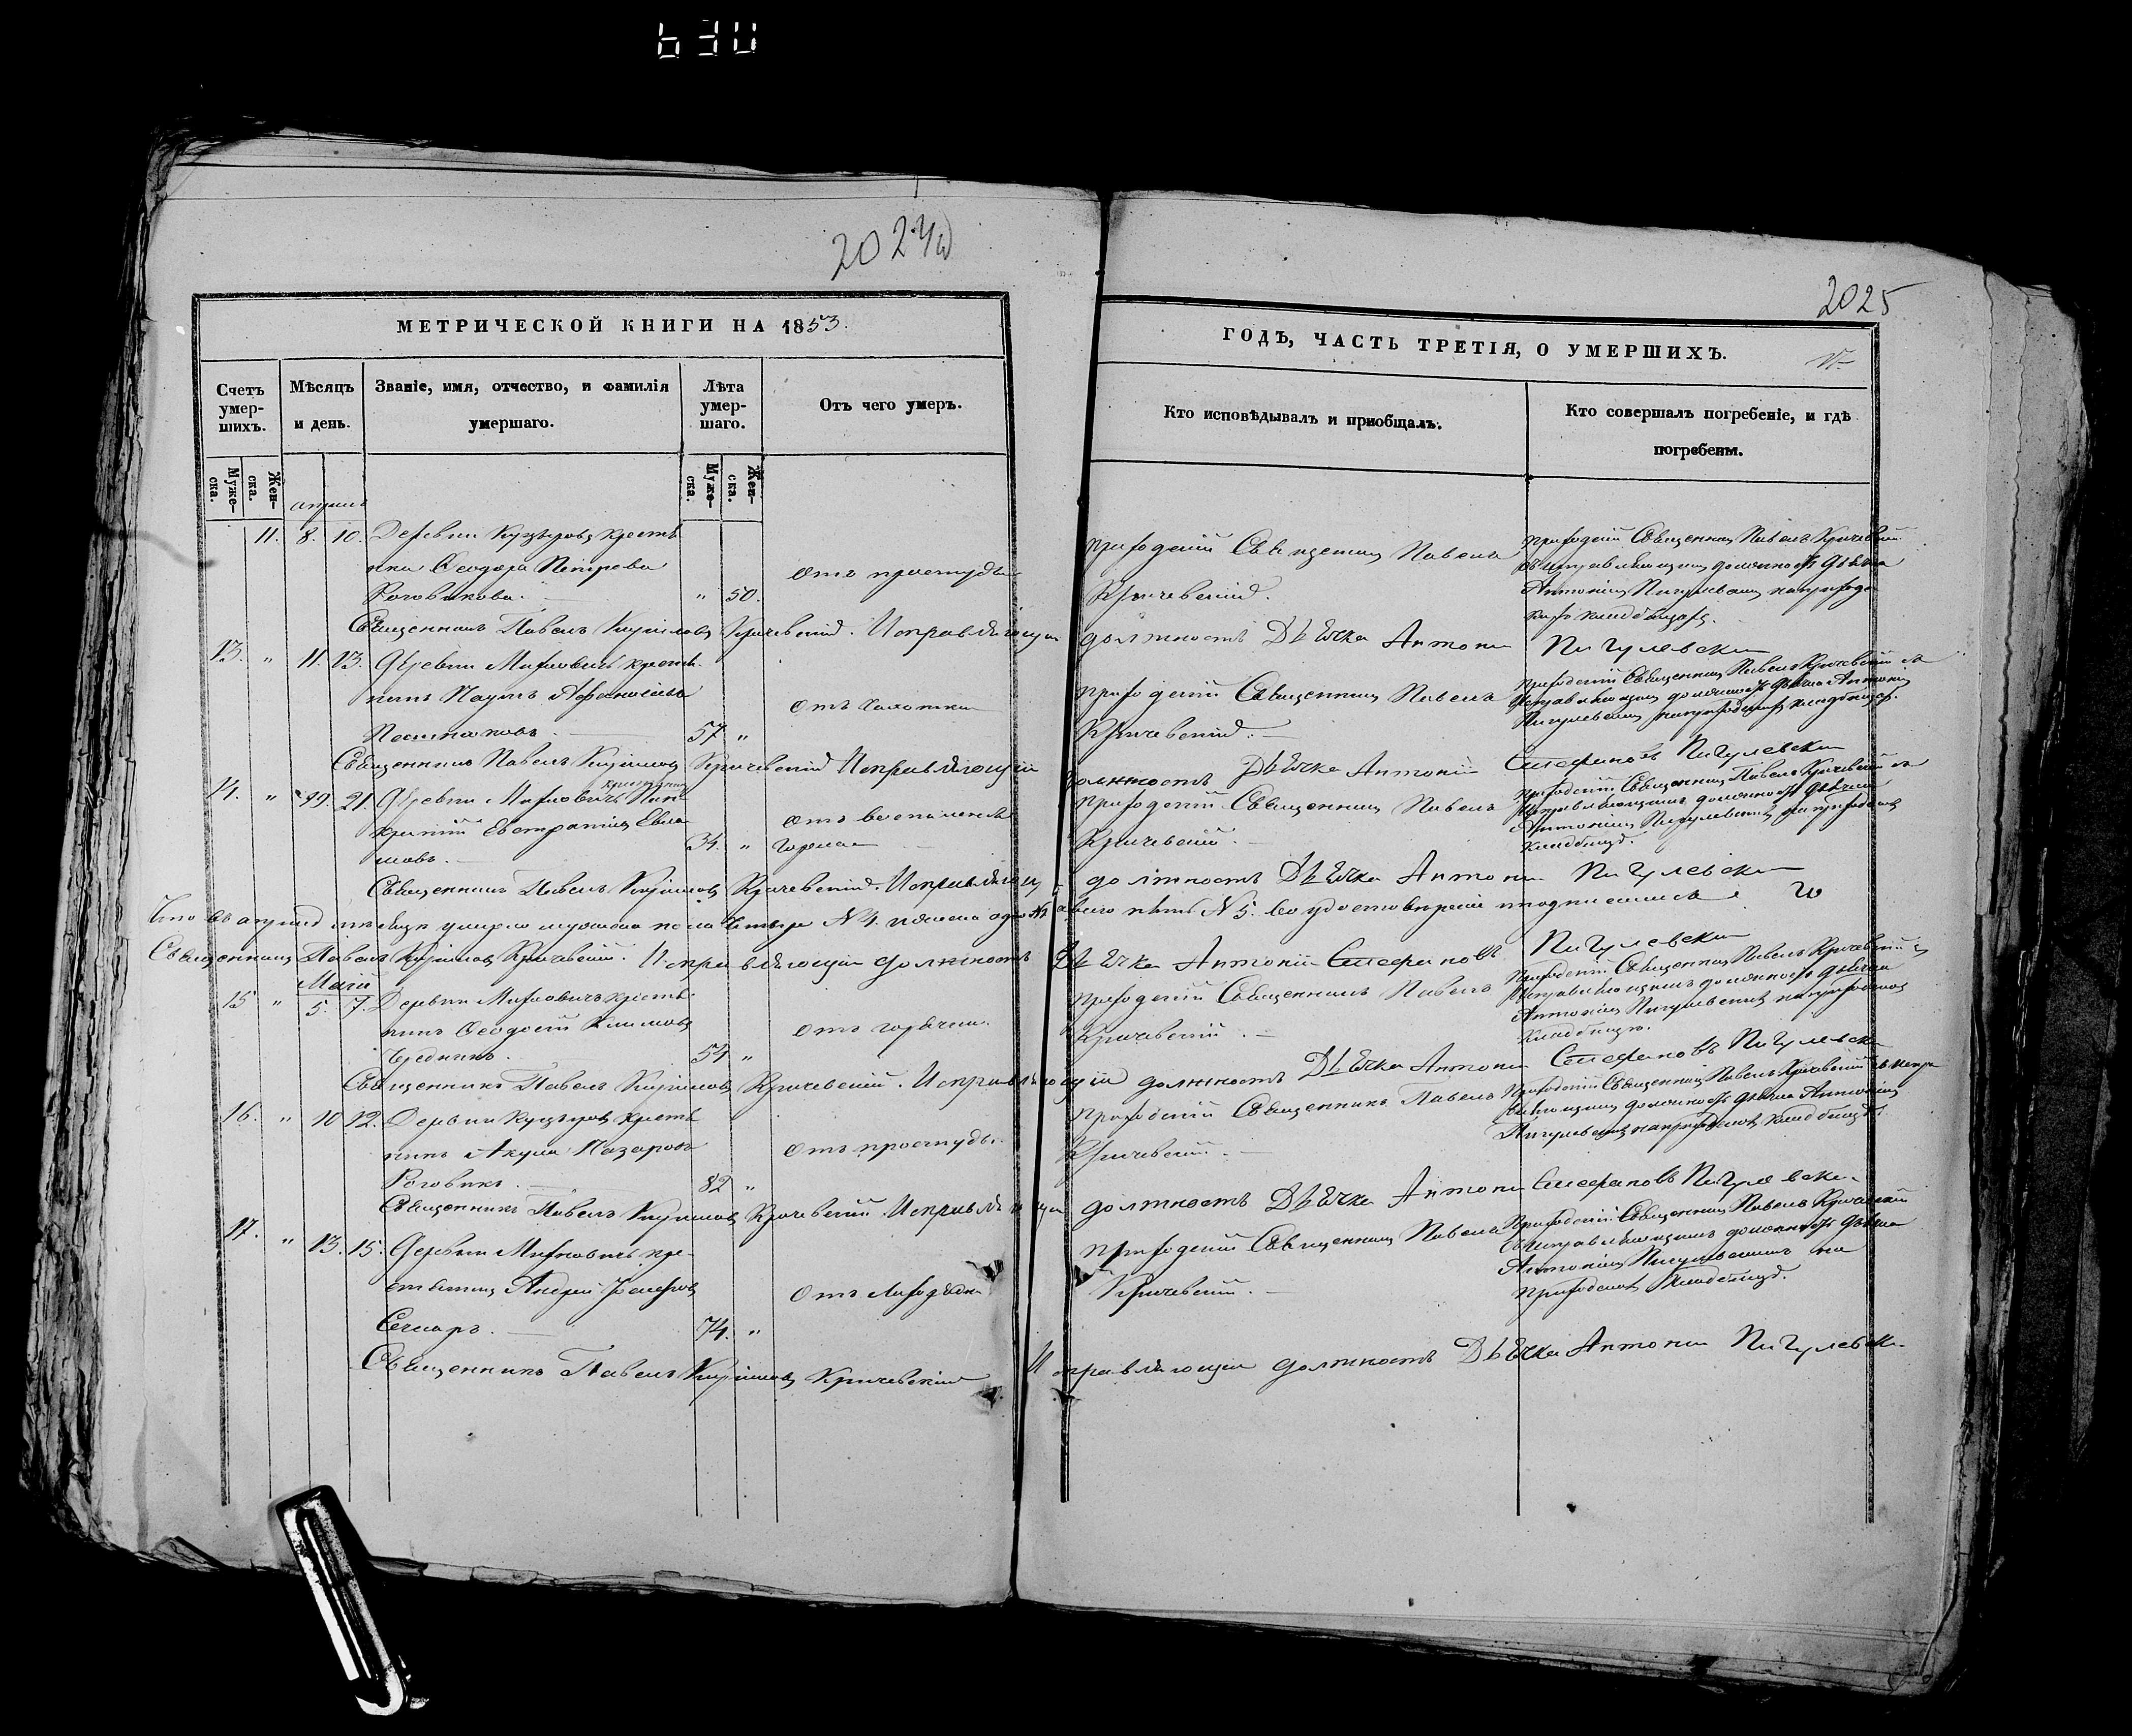 630
2024
2025
МЕТРИЧЕСКОЙ КНИГИ НА 1853.
ГОДЪ, ЧАСТЬ ТРЕТІЯ, О УМЕРШИХЪ.
Счетъ умер-шихъ.
Мѣсяцъ и день.
Званіе, имя, отчество, и фамилія умершаго.
Лѣта умер-шаго.
Отъ чего умеръ.
Кто исповѣдывалъ и пріобщалъ.
Кто совершалъ погребеніе, и гдѣ погребены.
Муже-ска.
Жен-ска.
Муже-ска.
Жен-ска.
апрель
11. 8. 10. Деревни крестьян
ка Ѳеодора Петрова
Роговикова. " 50.
отъ простуды
Приходскій Священникъ Павелъ
Кричевскій.
Приходскій Священникъ Павелъ Кричевскій
съ исправляющимъ должность дьячка
Антоніемъ Пигулевскимъ на приходс
комъ кладбищѣ.
Священникъ Павелъ Кириловъ Кричевскій. Исправляющій должность Дьячка Антоній Пигулевскій
13. " 11. 13. Деревни крестья
нинъ Наумъ Афанасіевъ
57 "
Приходскій Священникъ Павелъ
Кричевскій.
Приходскій Священникъ Павелъ Кричевскій съ
исправляющимъ должность дьячка Антоніемъ
Пигулевскимъ на приходскомъ кладбищѣ.
Священникъ Павелъ Кириловъ Кричевскій Исправляющій должность Дьячка Антоній Стефановъ Пигулевскій
14. " 19. 21. Деревни крестьянинъ
Евстратіевъ
34. "
отъ воспаленія
горла
Приходскій Священникъ Павелъ
Кричевскій.
Приходскій Священникъ Павелъ Кричевскій съ
исправляющимъ должность дьячка
Антоніемъ Пигулевскимъ на приходскомъ
кладбищѣ.
Священникъ Павелъ Кириловъ Кричевскій. Исправляющій должность Дьячка Антоній Пигулевскій
Что въ апрелѣ мѣсяцѣ умерло мужеска пола четыре № 4. женска одно № 1 а всего пять № 5. во удостовѣреніе подписались
Священникъ Павелъ Кириловъ Кричевскій. Исправляющій должность Дьячка Антоній Стефановъ Пигулевскій
Маій
15 " 5. 7. Деревни крестья
нинъ Ѳеодосій Климовъ
54 "
отъ горячки.
Приходскій Священникъ Павелъ
Кричевскій.
Приходскій Священникъ Павелъ Кричевскій съ
исправляющимъ должность дьячка
Антоніемъ Пигулевскимъ на приходскомъ
кладбищѣ.
Священникъ Павелъ Кириловъ Кричевскій. Исправляющій должность Дьячка Антоній Стефановъ Пигулевскій
16. " 10 12. Деревни крестья
нинъ Акула Назаровъ
Роговикъ. 82 "
отъ простуды.
Приходскій Священникъ Павелъ
Кричевскій.
Приходскій Священникъ Павелъ Кричевскій съ испра
вляющимъ должность дьячка Антоніемъ
Пигулевскимъ на приходскомъ кладбищѣ.
Священникъ Павелъ Кириловъ Кричевскій Исправляющій должность Дьячка Антоній Стефановъ Пигулевскій
17. " 13. 15. Деревни кре
стьянинъ Андрей
74. "
Приходскій Священникъ Павелъ
Кричевскій.
Приходскій Священникъ Павелъ Кричевскій
съ исправляющимъ должность дьячка
Антоніемъ Пигулевскимъ на
приходскомъ кладбищѣ.
Священникъ Павелъ Кириловъ Кричевскій Исправляющій должность Дьячка Антоній Пигулевскій